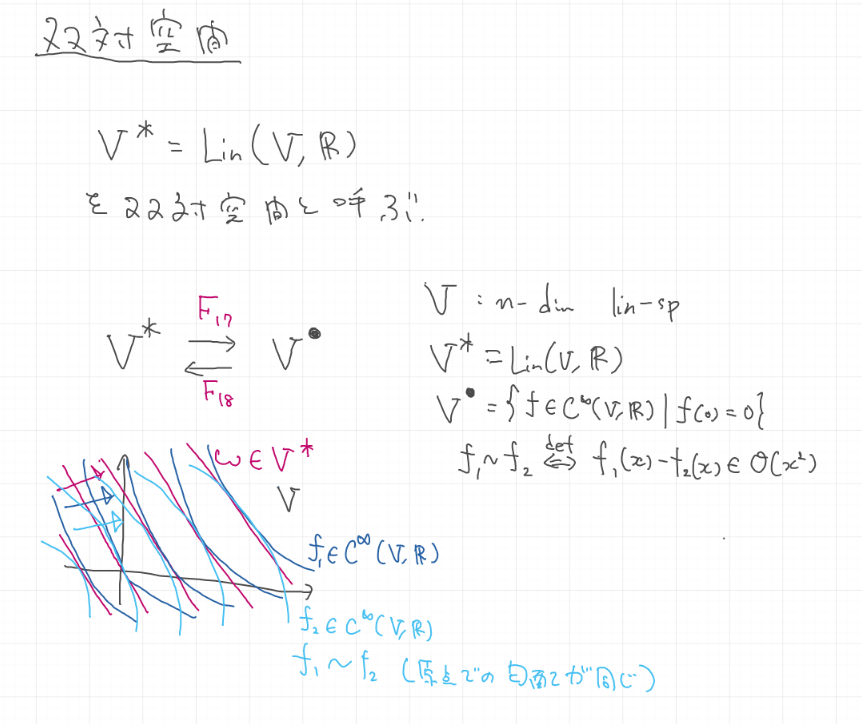 双対空間
V* = Lin(V, ℝ)
を双対空間と呼ぶ.
V* ⇄ V•
F₁₇
F₁₈
V : n-dim lin-sp
V* = Lin(V, ℝ)
V• = {f ∈ C^∞(V, ℝ) | f(0) = 0}
f₁ ~ f₂ ⇔(def) f₁(x) - f₂(x) ∈ O(x²)
ω ∈ V*
V
f₁ ∈ C^∞(V, ℝ)
f₂ ∈ C^∞(V, ℝ)
f₁ ~ f₂ (原点での勾配が同じ)